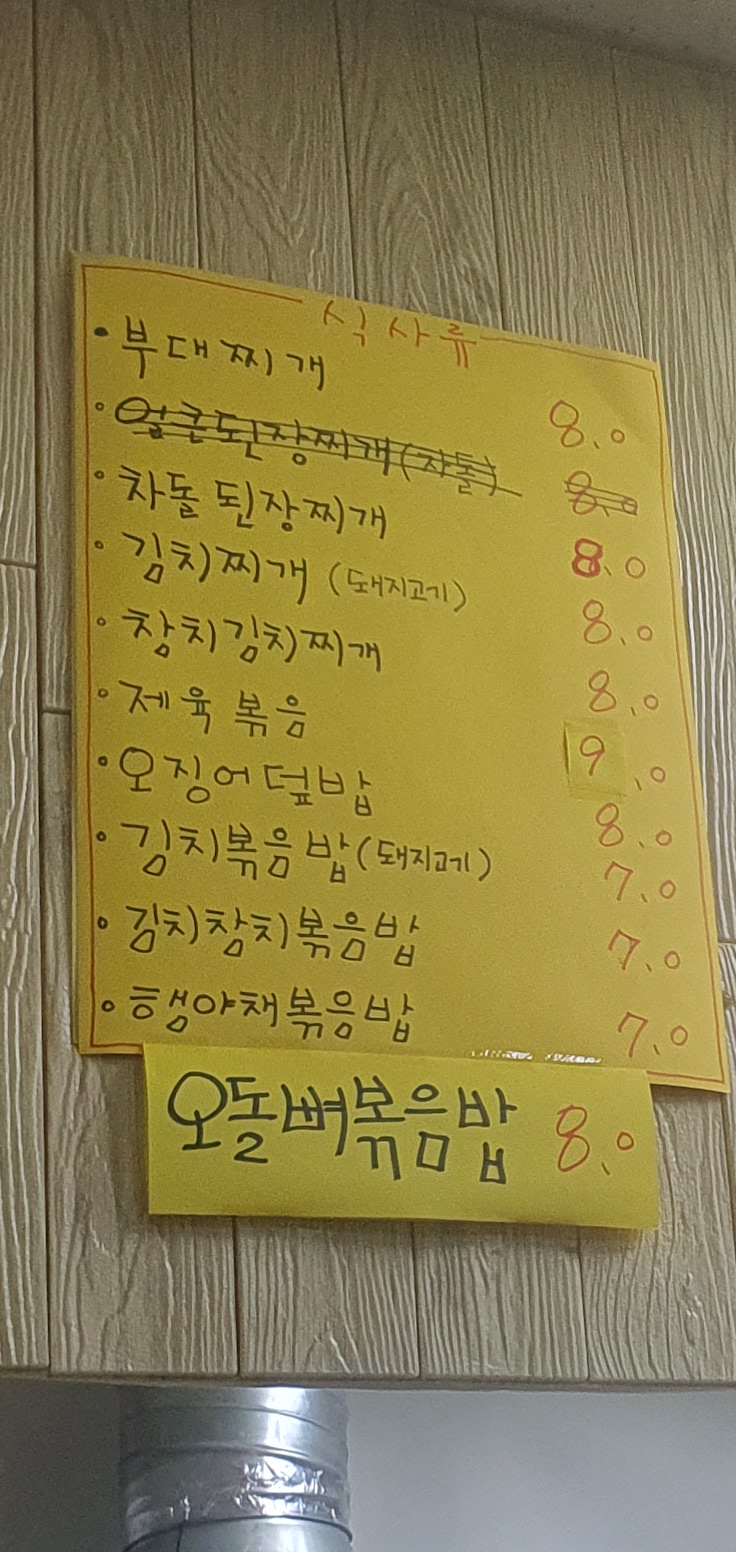 식사류
• 부대찌개 8.0
• 얼큰된장찌개(차돌) 8.0
• 차돌 된장찌개 8.0
• 김치찌개 (돼지고기) 8.0
• 참치김치찌개 8.0
• 제육 볶음 9.0
• 오징어덮밥 8.0
• 김치볶음밥(돼지고기) 7.0
• 김치참치볶음밥 7.0
• 햄야채볶음밥 7.0
오돌뼈볶음밥 8.0